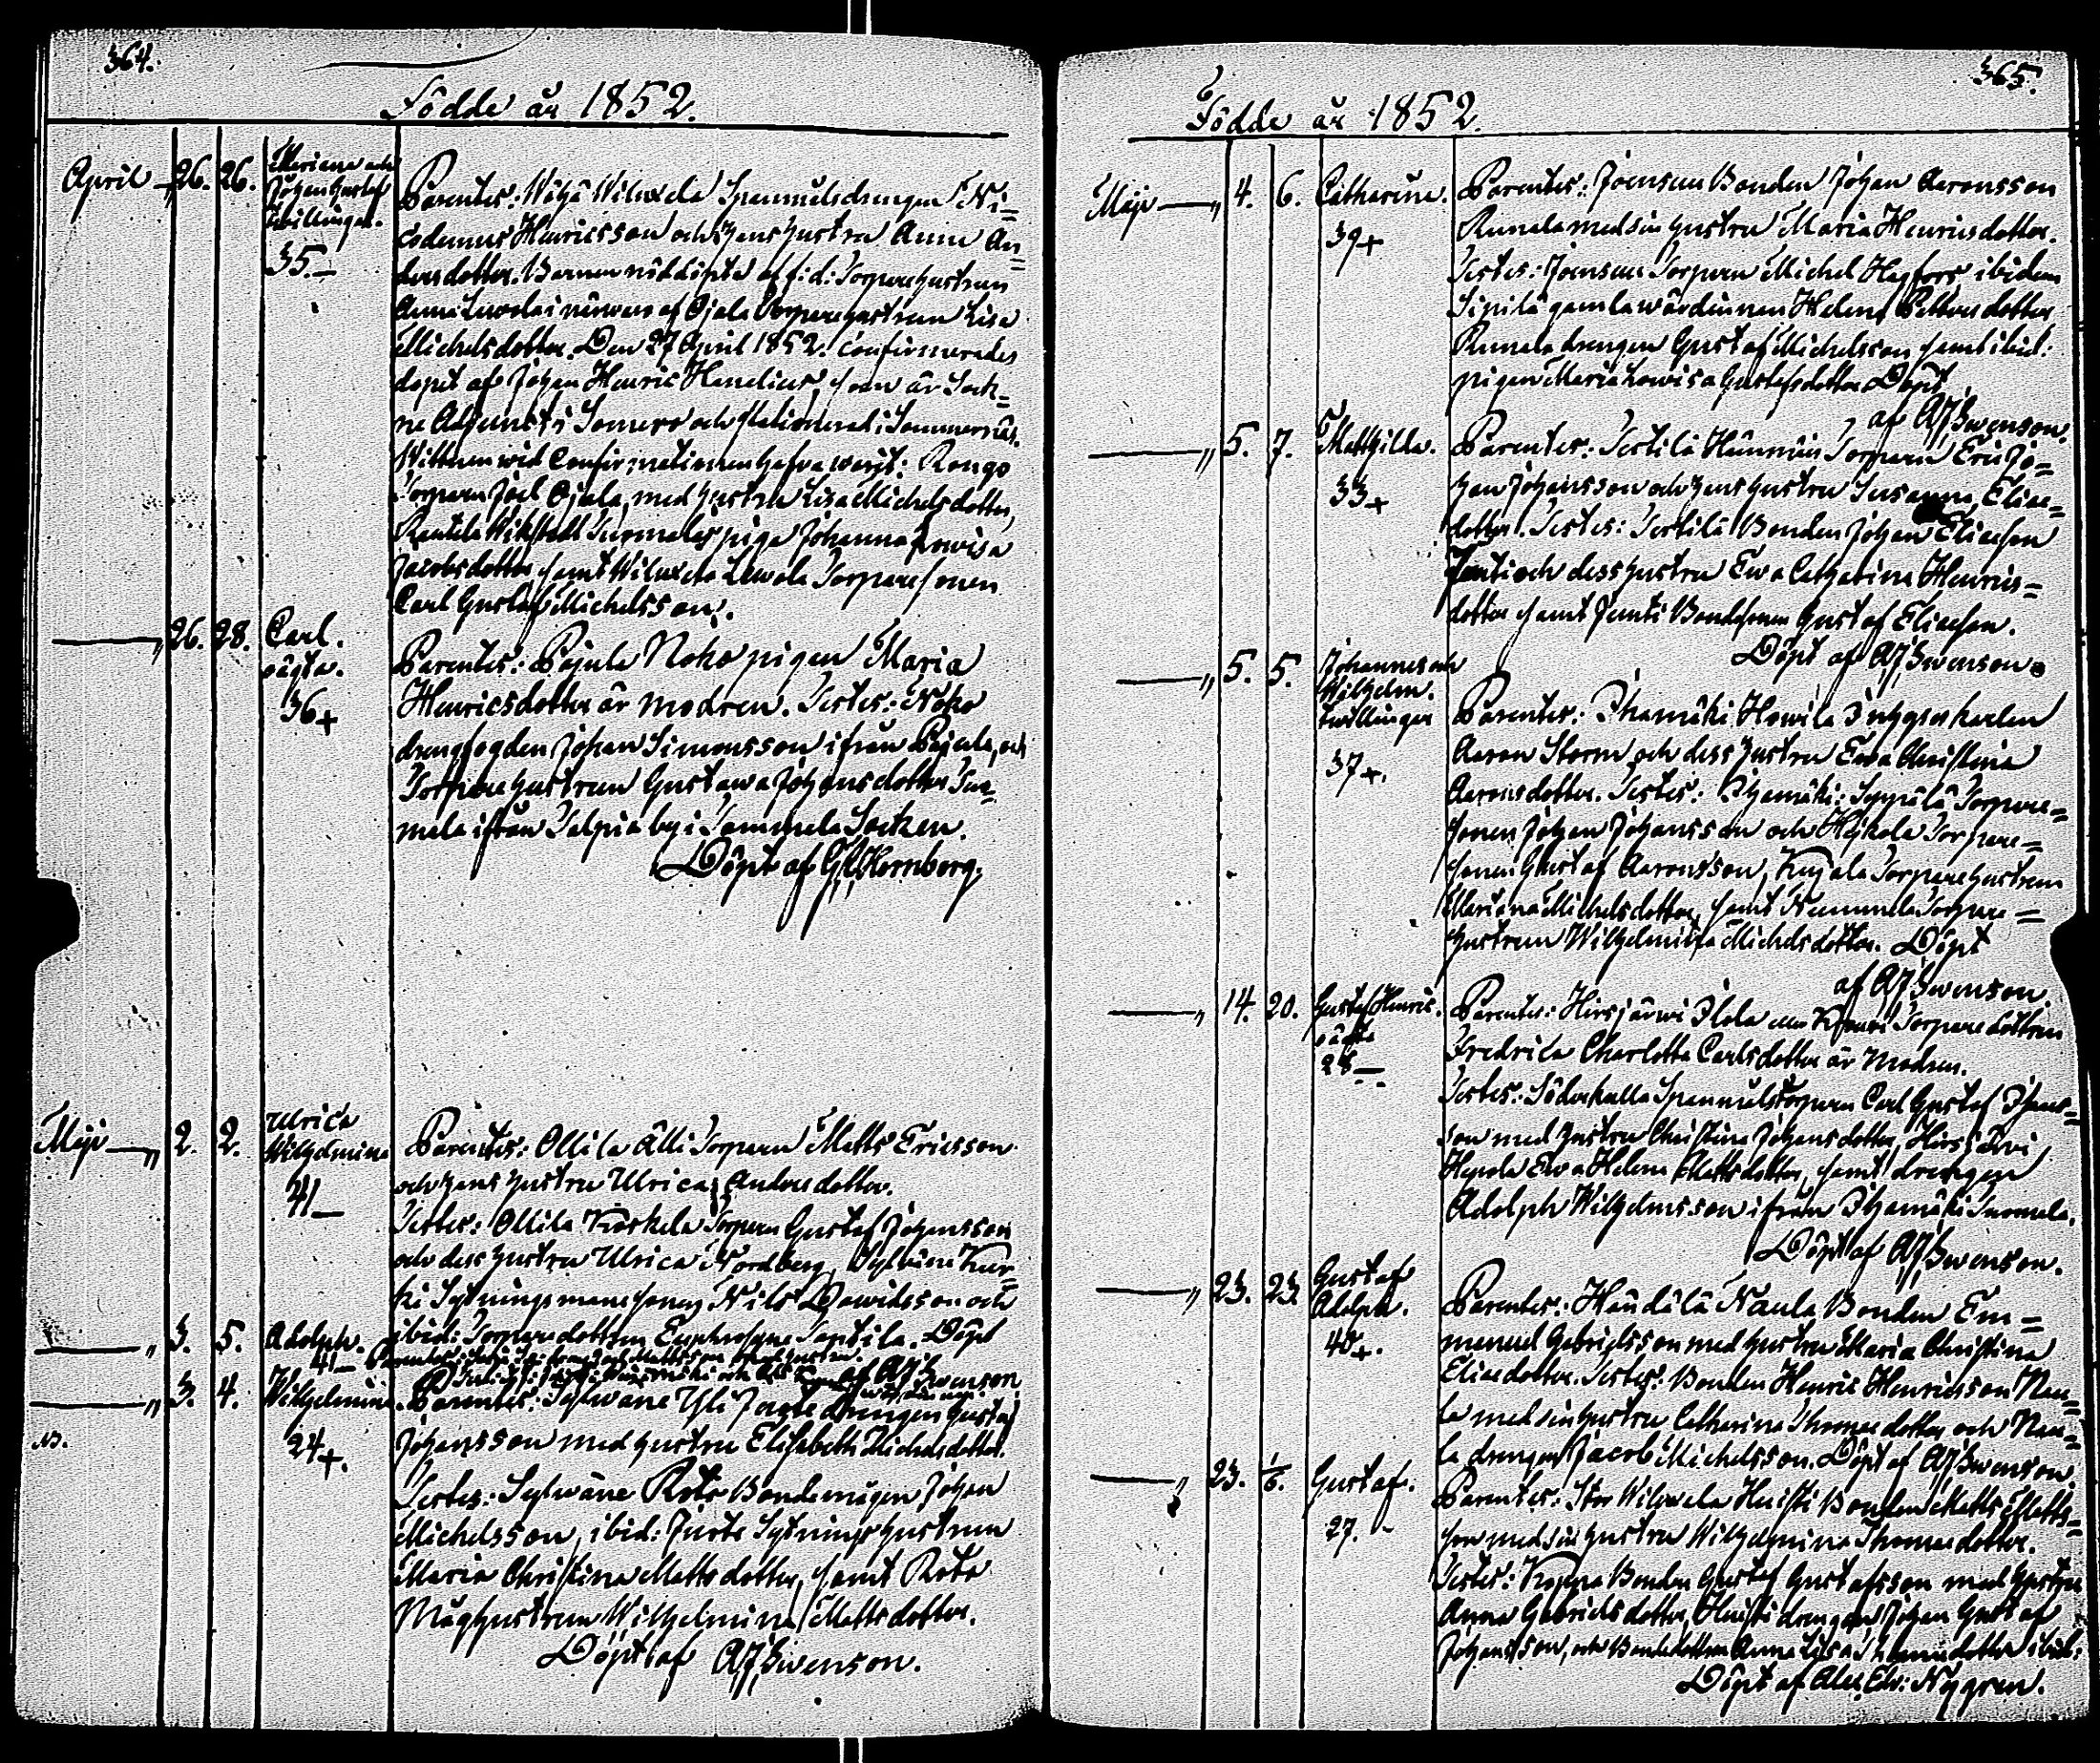 364.
Födde år 1852.
April 26. 26. Mariana och
Johan Gustaf
twillingar.
35.
Parentes: Wähä Wiluxela Spannmålsdrengen Ni=
codemus Henricsson och hans hustru Anna An=
dersdotter. Barnen nöddöpta af f: d: Torparehustrun
Anna Lewola i närwaro af Ojala Torparehustrun Lisa
Michelsdotter. Den 27 April 1852. Confirmerades
dopet af Johan Henric Hanelius, som är Sock=
ne Adjunct i Somero och stationerad i Sommernäs.
Wittnen wid Confirmationen hafva warit: Rengo
Torparen Joel Ojala, med hustru Lisa Michelsdotter,
Rautela Wikstedt Tuomolas piga Johanna Lowisa
Jacobsdotter samt Wiluxela Lewola Torparesonen
Carl Gustaf Michelsson.
26. 28. Carl.
oägta.
36+
Parentes: Pajula Noko pigan Maria
Henricsdotter är modren. Testes: Noko
drengfogden Johan Simonsson ifrån Pajula, och
Torparehustrun Gustawa Johansdotter
ifrån Talpia by i Tammela Socken.
Döpt af G. Hornborg.
Maji 2. 2. Ulrica
Wilhelmina
41
Parentes: Ollila Älli Torparen Matts Ericsson
och hans hustru Ulrica Andersdotter.
Testes: Ollila Koskela Torparen Gustaf Johansson
och dess hustru Ulrica Nordberg, Sylwäne Kur=
ki Sytningsmans sonen Nils Dawidsson och
ibid: Torparedottren Euphrosyne Santila. Döpt
af AJ Swenson.
3. 5. Adolph.
41
3. 4. Wilhelmina.
24+.
Parentes: Sylwäne Yli Jaate drengen Gustaf
Johansson med hustru Elisabeth Michelsdotter.
Testes: Sylwäne Rote Bondemågen Johan
Michelsson, ibid: Juote Sytningshustrun
Maria Christina Mattsdotter, samt Rote
Måghustrun Wilhelmina Mattsdotter.
Döpt af AJ Swenson.
365.
Födde år 1852.
Maji 4. 6. Catharina.
39+
Parentes: Joensuu Bonden Johan Aaronsson
Runala med sin hustru Maria Henricsdotter.
Testes: Joensuu Torparen Michel Hagfors, ibidem
Sipilä gamla wärdinnan Helena Pettersdotter
Runala drengen Gustaf Michelsson samt ibid:
pigan Maria Lowisa Gustafsdotter Döpt
af AJ Swenson.
5. 7. Mathilda.
33+
Parentes: Terttilä Hännian Torparen Eric Jo=
han Johansson och hans hustru Susanna Elias=
dotter. Testes: Terttilä Bonden Johan Eliasson
Jenti och dess hustru Ewa Catharina Henrics=
dotter samt Jenti Bondesonen Gustaf Eliasson.
Döpt af AJ Swenson.
5. 5. Johannes och
Wilhelm.
twillingar
37+.
Parentes: Ihamäki Howila Inhyseskarlen
Aaron Storm och dess hustru Ewa Christina
Aaronsdotter. Testes: Ihamäki: Seppälä Torpare=
sonen Johan Johansson och Hejkola Torpare=
sonen Gustaf Aaronsson, Kujala Torparehustrun
Mariana Michelsdotter, samt Nummela Torpare=
hustrun Wilhelmina Michelsdotter. Döpt
af AJ Swenson.
14. 20. Gustaf Henric.
oägta
28
Parentes: Hirsjärwi Ilola Torparedottren
Fredrica Charlotta Carlsdotter är Modren.
Testes: Söderkulla Spannmålstorparen Carl Gustaf Johans=
son med hustru Christina Johansdotter, Hirsjärwi
Hejkola Ewa Helena Mattsdotter, samt drengen
Adolph Wilhelmsson ifrån Ihamäki Tuomola.
Döpt af AJ Swenson.
23. 23. Gustaf
Adolph.
40+.
Parentes: Häntälä Naula Bonden Em=
manuel Gabrielsson med hustru Maria Christina
Eliasdotter. Testes: Bonden Henric Henricsson Nau=
la med sin hustru Catharina Thomasdotter och Nau=
la drengen Jacob Michelsson. Döpt af AJ Swenson.
23. 1/6. Gustaf.
27.
Parentes: Stor Wiluxela Huisti Bonden Matts Matts=
son med sin hustru Wilhelmina Thomasdotter.
Testes: Koppa Bonden Gustaf Gustafsson med hustru
Anna Gabrielsdotter, Huisti drengen Johan Gustaf
Johansson, och Bondedottren Anna Lisa Thomasdotter ibid:
Döpt af Alex. Edv: Nygren.